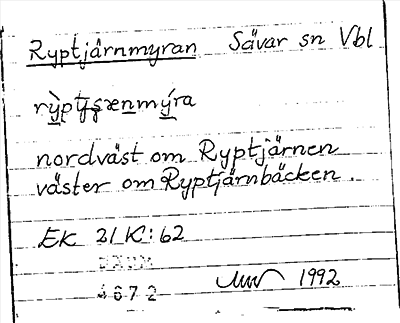 Ryptjärnmyran Sävar sn Vbl
nordväst om Ryptjärnen
väster om Ryptjärnbäcken.
EK 21 K:62
4672
1992